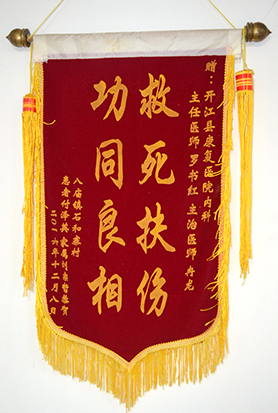 赠：开江县康复医院内科
主任医师罗书红 主治医师冉龙
救死扶伤
功同良相
八庙镇石和寨村
患者付泽英家属
二〇一六年十二月八日